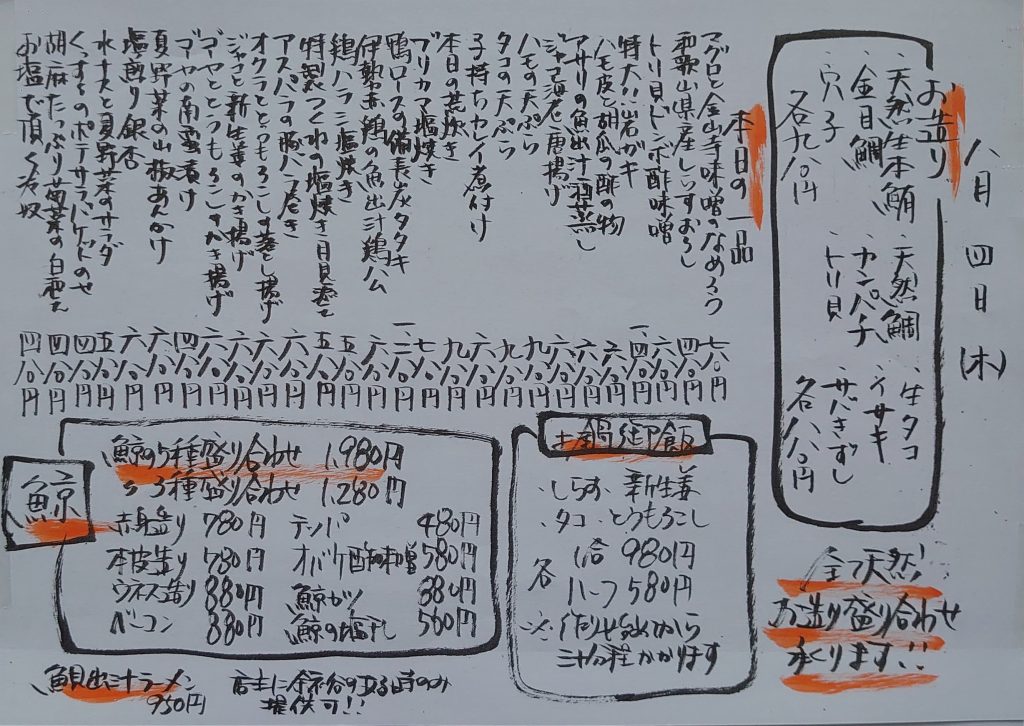 八月四日(木)
お造り
・天然生本鮪
・金目鯛
・穴子
各九八〇円
・天然鯛
・カンパチ
・トリ貝
・生タコ
・イサキ
・サバきずし
各八八〇円
全て天然!
お造り盛り合わせ
承ります!!
本日の一品
マグロと金山寺味噌のなめろう 七八〇円
和歌山県産しらすおろし 四八〇円
トリ貝ドンボ酢味噌 六八〇円
特大!!岩ガキ
ハモ皮と胡瓜の酢の物 六八〇円
アサリの魚出汁酒蒸し 六八〇円
ジャコ海老唐揚げ 六八〇円
ハモの天ぷら 九八〇円
タコの天ぷら 九八〇円
子持ちカレイ煮付け
本日の荒炊き
ブリカマ塩焼き
鴨ロースの備長炭タタキ
伊勢赤鶏の魚出汁鶏ハム 六八〇円
鶏ハラミ塩焼き 五八〇円
特製つくねの塩焼き月見添え 五八〇円
アスパラの豚バラ巻き 六八〇円
オクラととうもろこしの落とし揚げ 六八〇円
ジャコと新生姜のかき揚げ 六八〇円
ゴーヤととうもろこしのかき揚げ 六八〇円
ゴーヤの南蛮漬け 四八〇円
夏野菜の山椒あんかけ 六八〇円
塩煎り銀杏 六八〇円
水ナスと夏野菜のサラダ 五八〇円
くんずものポテサラバケットのせ 四八〇円
胡麻たっぷり菊菜の白和え 四八〇円
お塩で頂く冷奴 四八〇円
お鍋御飯
・しらす・新生姜
・タコ・とうもろこし
各
1合 980円
ハーフ 580円
※作り始めから
三十分程かかります
鯨
鯨の5種盛り合わせ 1,980円
〃3種盛り合わせ 1,280円
赤身造り 780円
本皮造り 780円
ウネス造り 880円
ベーコン 880円
テッパ 480円
オバケ酢味噌 580円
鯨カツ 880円
鯨の塩干し 580円
鯛出汁ラーメン
950円
店主に余裕のある時のみ
提供可!!